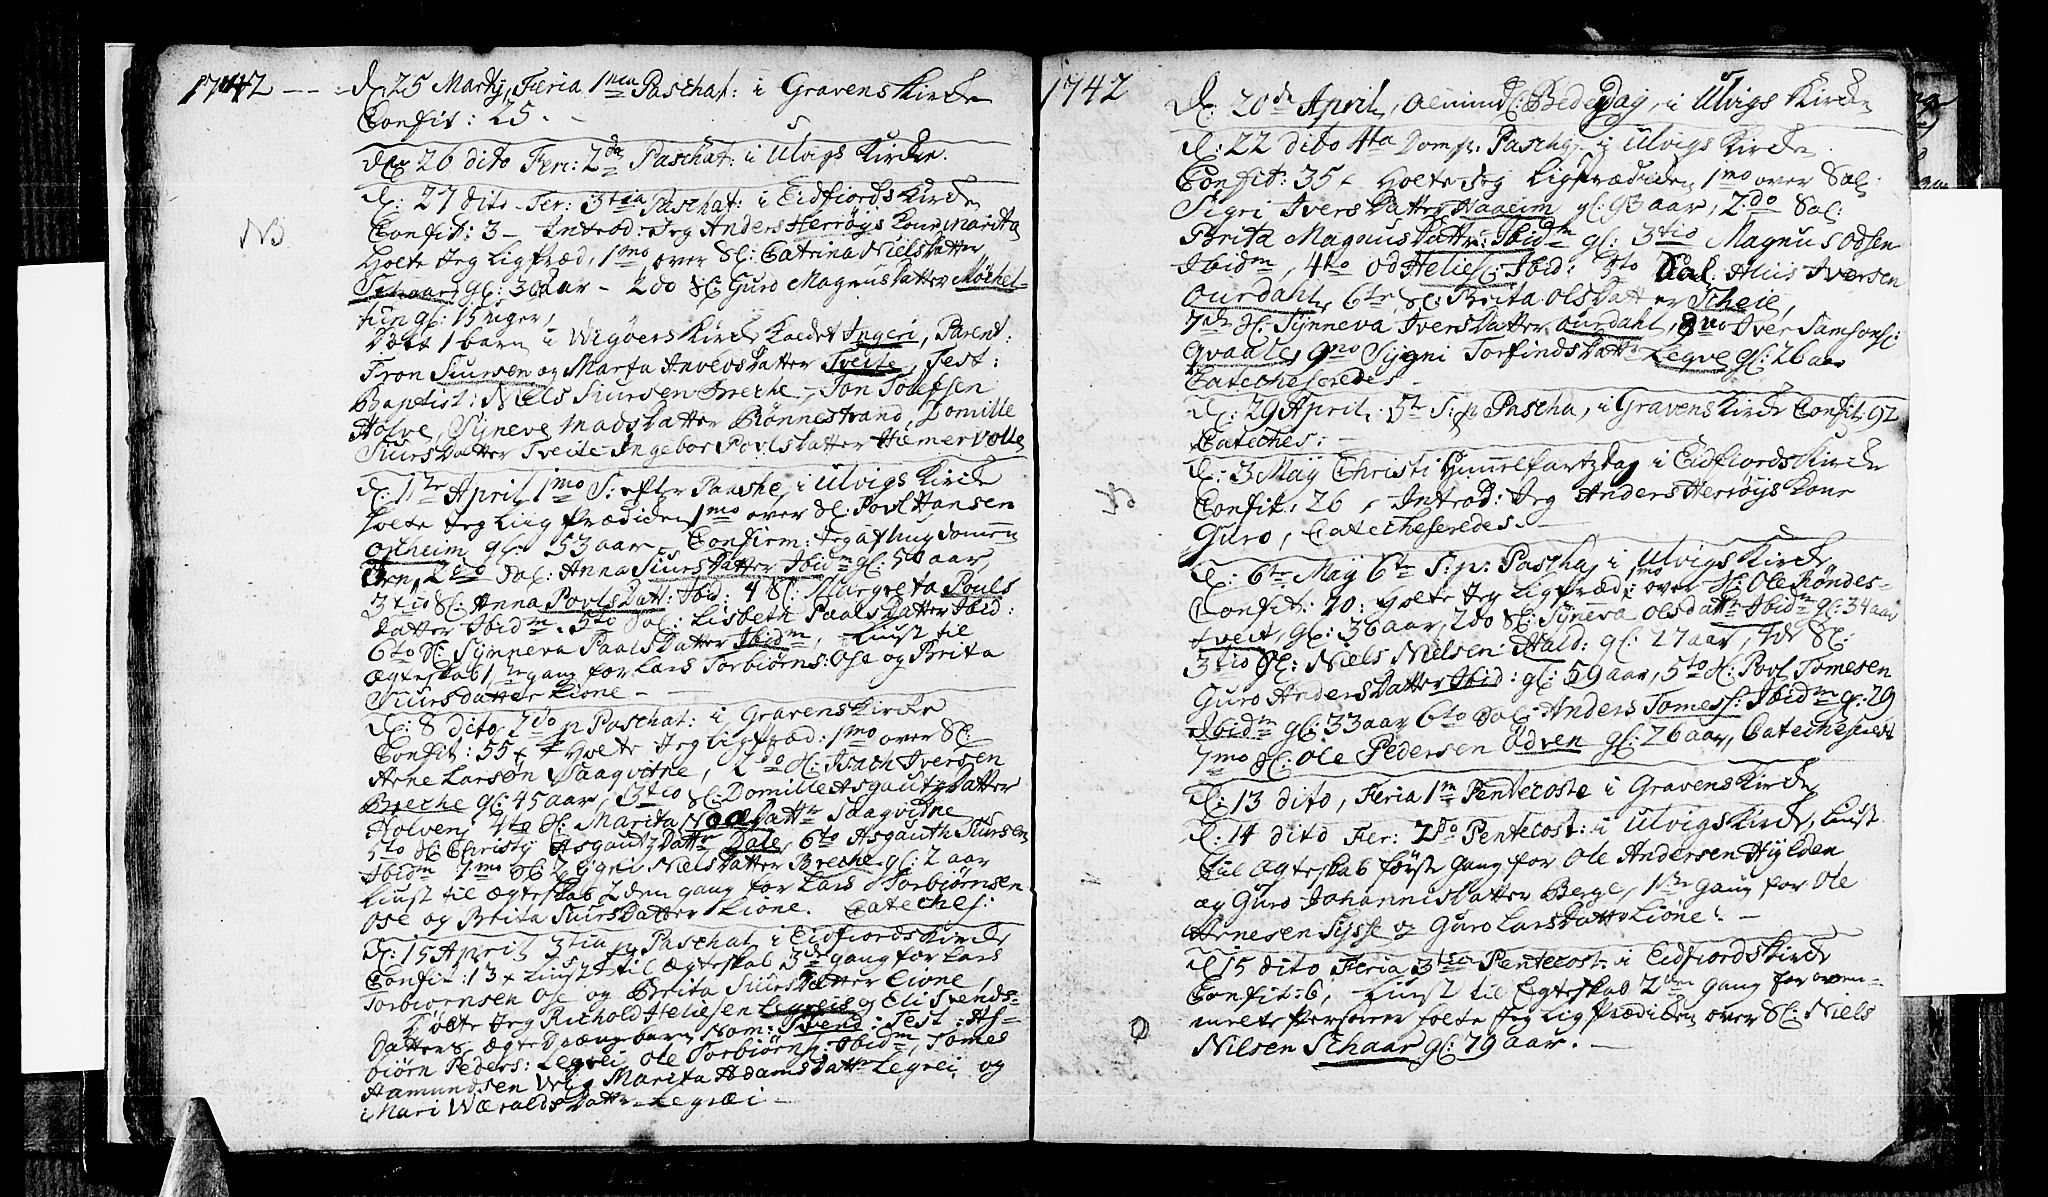 1742 - - - d. 25 Martij, Feria 1ma Paschat: i Gravens Kirke
Confit: 25. -
d. 26 dito Fer: 2da Paschat: i Ulvigs Kirke.
d: 27 dito Fer: 3tia Paschat: i Eidfiords Kirke
NB
Confit: 3 - Introd: Jeg Anders Herrøys Kone Marita
Holte Jeg Ligpræd, 1mo over Sl: Catrina Niels Datter
Schaar gl: 30 Aar - 2do Sl: Guro Magnus Datter Møchel-
tun gl: 15 uger,
Døbt 1 barn i Wigøers Kirke Kaldet Ingeri, Parent:
Tron Siursen og Marta Anveds Datter Tveite, Test:
Baptist: Niels Siursen Breche, Jon Tolefsen
Holve, Syneve Mads Datter Rønnestrand, Domille
Siurs Datter Tveite Ingebor Povls Datter Hiemervolle
d. 1te April 1mo S: efter Pasche, i Ulvigs Kirke
holte Jeg Liig Prædiken 1mo over Sl: Povl Hansen
ortheim gl: 53 aar Confirm: Jeg af ungdommen
2do Sal: Anna Siurs Datter Ibidm gl: 50 aar,
3tio Sl: Anna Povls Datt: Ibid: 4 Sl: Margreta Pouls
Datter Ibidm. 5to Sal: Lisbeth Paals Datter Ibid:
6to Sl: Synneva Paals Datter Ibidm, Liust til
Ægteskab 1ste gang for Lars Torbiørns: Ose og Brita
Siurs datter Lione -
d: 8 dito 2do p Paschat: i Gravens Kirke
Confit: 55 Holte Jeg ligpræd: 1mo over Sl:
Arne Larson Saaqvitne, 2do Sl: Isach Iversen
Breche gl: 45 aar, 3tio Sl: Domille Asgautz Datter
Holven, 4to Sl: Marita Datter Saaqvitne
5to Sl: Christj Asgautz Datt: Dale, 6to Asgauth Siursen
Ibidm 7mo Sl: Sigri Niels Datter Breche gl: 2 aar
Liust til ægteskab 2den gang for Lars Torbiørnsen
Ose og Brita Siurs Datter Lione. Cateches:
d: 15 April 3tia p Paschat i Eidfiords Kirke
Confit: 13 Liust til Ægteskab 3die gang for Lars
Torbiørnsen Ose og Brita Siurs Datter Lione,
Døbte Jeg Richold Heliesen Legreis og Eli Svends-
Datters ægte barn Nom: Svend. Test: As-
biørn Peders: Legrei Ole Torbiørns: Ibidm, Tomes
Aamundsen Wiig Marita Adams Datter Legrei og
Mari Wæralds Datt: Legræi -
1742
d: 20de April, Alminds: Bededag, i Ulvigs Kirke
d: 22 dito 4ta Dom: p: Pascha i Ulvigs Kirke
Confit: 35 Holte Jeg Ligprædiken 1mo over Sal:
Sigri Ivers Datter Haaeim gl: 93 aar, 2do Sal:
Brita Magnus Datter Ibidm gl: 3tio Magnus Odsen
Ibidm, 4to Od Helies: Ibid: 5to Sal: Iversen
Ourdahl, 6te Sl: Brita Ols Datter Scheie,
7de Sl: Synneva Ivers Datter ourdahl, 8vo Iver Samsons:
Qvaale 9no Sygni Torfinds Datt: Legve gl: 26 aar
Catecheseredes
d: 29 April: 5te S: p Pascha, i Gravens Kirke Confit: 92
Cateches: -
d: 3 Maij Christi Himmelfartzdag i Eidfiords Kirke
Confit: 26, Introd: Jeg Anders Herrøys Kone
Guro, Catecheseredes. -
d: 6te Maij 6te S: p: Pascha i Ulvigs Kirke
Confit: 70: Holte Jeg Ligpræd: 1mo over Sl: Ole Røndes-
tveit, gl: 36 aar, 2do Sl: Synneva Olsdatt: Ibidm gl: 34 aar
3tio Sl: Niels Nielsen Hald: gl: 27 aar, 4de Sl:
Guro Anders Datter Ibid: gl: 59 aar, 5to Sl: Povl Tomesen
Ibidm gl: 33 aar 6to Sal: Anders Tomess: Ibidm gl: 29
7mo Sl: Ole Pedersen Ödven gl: 26 aar,
d: 13 dito, Feria 1ma Pentecoste i Gravens Kirke
d: 14 dito Fer: 2do Pentecost: i Ulvigs Kirke, Liust
til Ægteskab første gang for Ole Andersen Hylden
og Guro Johannis Datter Berge, 1ste gang for Ole
Arnesen Sysse og Guro Lars Datter Lione. -
d 15 dito Feria 3tia Pentecost: i Eidfiords Kirke
Confit: 6, Liust til Egteskab 2den gang for oven-
melte Personer holte Jeg Lig Prædiken over Sl: Niels
Nilsen Schaar gl: 79 aar. -